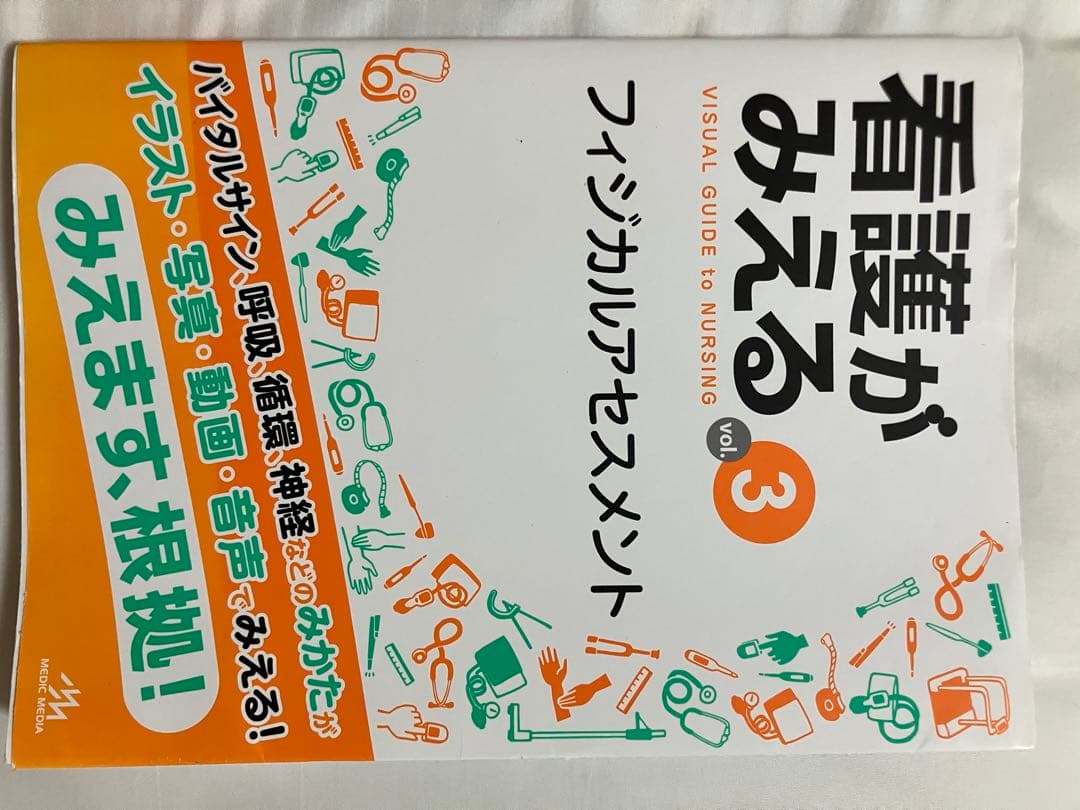 看護が
みえる
vol.
3
VISUAL GUIDE to NURSING
フィジカルアセスメント
バイタルサイン、呼吸、循環、神経などのみかたが
イラスト・写真・動画・音声でみえる!
みえます、根拠!
MEDIC MEDIA